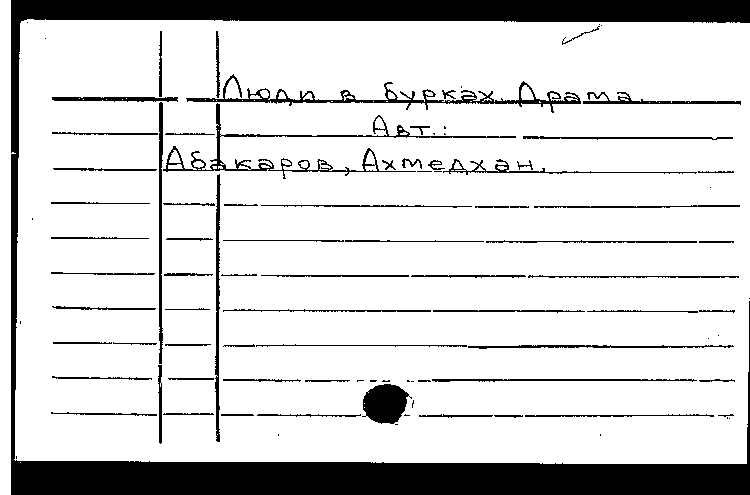 Люди в бурках. Драма.
Авт.:
Абакаров, Ахмедхан.